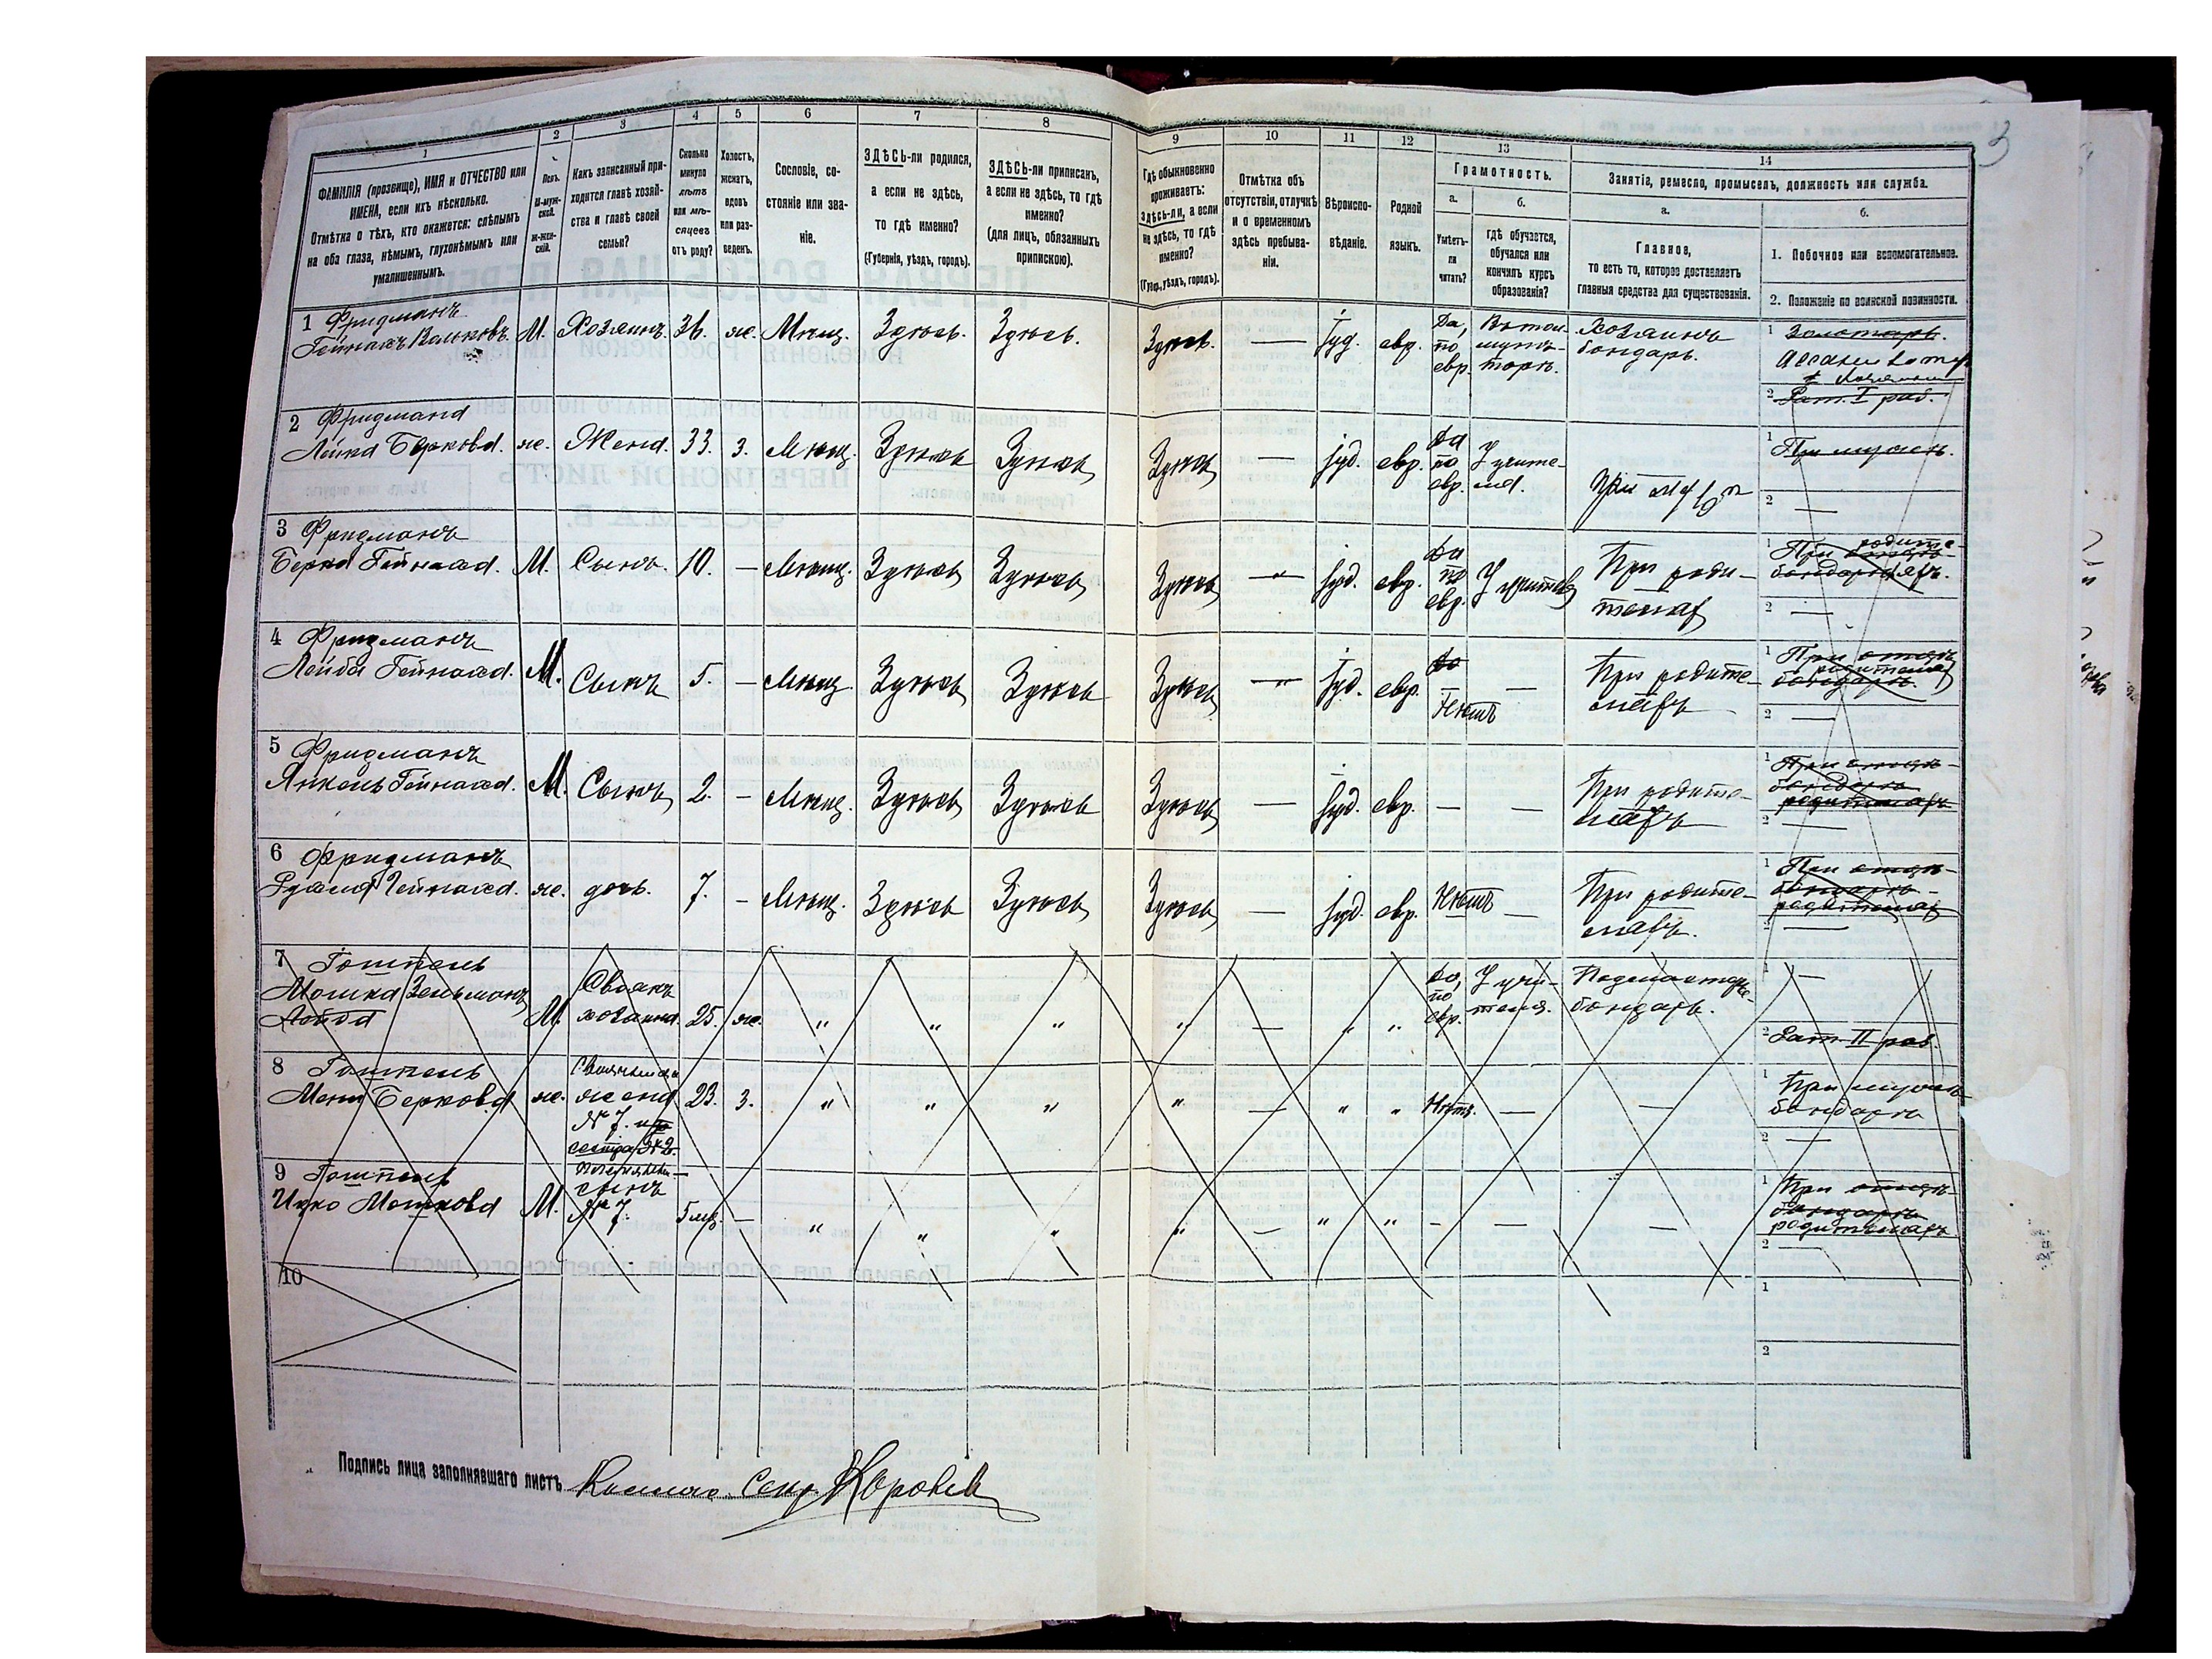 1
ФАМИЛІЯ (прозвище), ИМЯ и ОТЧЕСТВО или
ИМЕНА, если ихъ нѣсколько.
Отмѣтка о тѣхъ, кто окажется: слѣпымъ
на оба глаза, нѣмымъ, глухонѣмымъ или
умалишеннымъ.
2
Полъ.
М-муж-
ской.
Ж-жен-
скій.
3
Какъ записанный при-
ходится главѣ хозяй-
ства и главѣ своей
семьи?
4
Сколько
минуло
лѣтъ
или мѣ-
сяцевъ
отъ роду?
5
Холостъ,
женатъ,
вдовъ
или раз-
веденъ.
6
Сословіе, со-
стояніе или зва-
ніе.
7
ЗДѢСЬ-ли родился,
а если не здѣсь,
то гдѣ именно?
(Губернія, уѣздъ, городъ).
8
ЗДѢСЬ-ли приписанъ,
а если не здѣсь, то гдѣ
именно?
(для лицъ, обязанныхъ
припискою).
9
Гдѣ обыкновенно
проживаетъ:
здѣсь-ли, а если
не здѣсь, то гдѣ
именно?
(Губер., уѣздъ, городъ).
10
Отмѣтка объ
отсутствіи, отлучкѣ
и о временномъ
здѣсь пребыва-
ніи.
11
Вѣроиспо-
вѣданіе.
12
Родной
языкъ.
13
Грамотность.
а.
Умѣетъ-
ли
читать?
б.
гдѣ обучается,
обучался или
кончилъ курсъ
образованія?
14
Занятіе, ремесло, промыселъ, должность или служба.
а.
Главное,
то есть то, которое доставляетъ
главныя средства для существованія.
б.
1. Побочное или вспомогательное.
2. Положеніе по воинской повинности.
3
1 Фридманъ
Гейнахъ Вольковъ. М. Хозяинъ. 36. ж. Мѣщ. Здѣсь. Здѣсь. Здѣсь. — Іуд. евр.
Да,
по
евр.
Хозяинъ
бондарь.
1
2
2 Фридманъ
Лейка Беркова. ж. Жена. 33. з. Мѣщ. Здѣсь Здѣсь Здѣсь — Іуд. евр.
Да
по
евр.
У учите-
ля.
При
1 При мужѣ.
2 —
3 Фридманъ
Берко Гейнахов. М. Сынъ. 10. — Мѣщ. Здѣсь Здѣсь Здѣсь — Іуд. евр.
Да
по
евр.
У учителя
При роди-
теляхъ
1 При родите-
2 —
4 Фридманъ
Лейба Гейнахов. М. Сынъ 5. — Мѣщ. Здѣсь Здѣсь Здѣсь — Іуд. евр.
Да
—
Нѣтъ —
При родите-
ляхъ
1 При отцѣ
родителяхъ
бондарѣ.
2 —
5 Фридманъ
Янкель Гейнахов. М. Сынъ 2. — Мѣщ. Здѣсь Здѣсь Здѣсь — Іуд. евр. — —
При родите-
ляхъ
1 При отцѣ-
бондарѣ
родителяхъ
2 —
6 Фридманъ
Гейнахов. ж. дочь. 7. — Мѣщ. Здѣсь Здѣсь Здѣсь — Іуд. евр. Нѣтъ —
При родите-
ляхъ.
1 При отцѣ-
бондарѣ-
родителяхъ
2 —
7
Мошка Зельманъ
Лейба М.
Своякъ
хозяина. 25. ж. " " " " — " "
Да,
по
евр.
У учи-
теля.
Подмастерье-
бондарь.
1 —
2 Рат. II раз.
8
Беркова ж.
жена
№ 7.
сестра № 2.
23. з. " " " " — " " Нѣтъ. — —
1 При мужѣ
бондарѣ
2 —
9
Ицко Мошкова М.
сынъ
№ 7. 5 мѣс. — " " " " — " " — — —
1 При отцѣ-
бондарѣ
родителяхъ.
2 —
10
1
2
Подпись лица заполнявшаго листъ